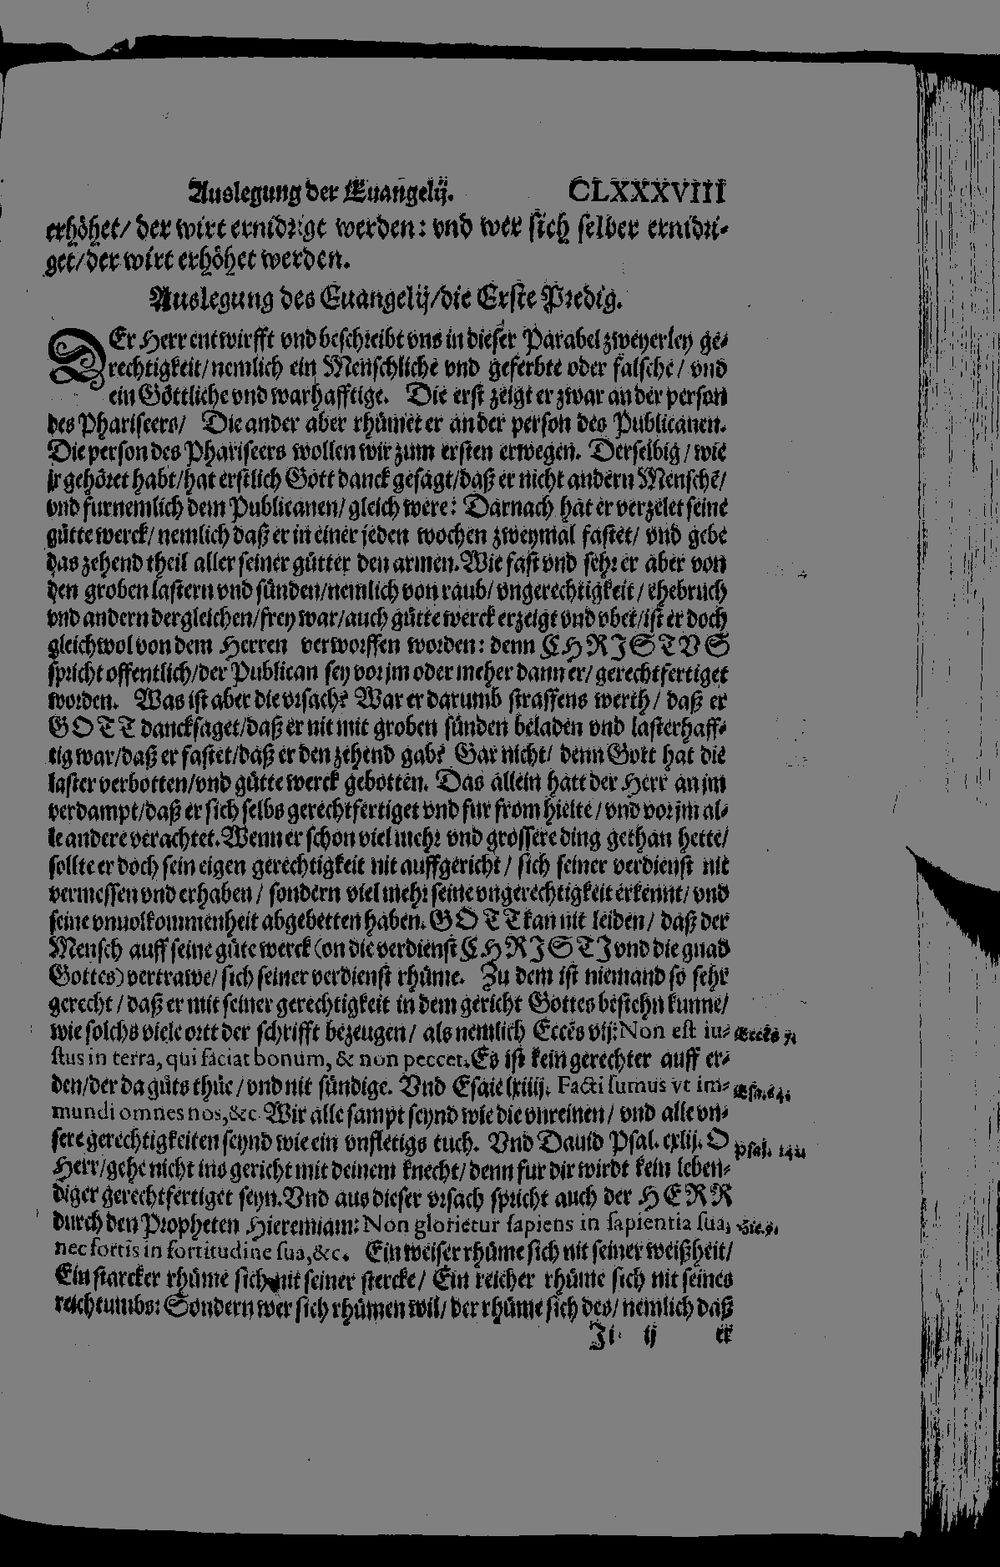 Auslegung der Euangelij. CLXXXVIII
erhöhet/ der wirt ernidriget werden: vnd wer sich selber ernidri-
get/der wirt erhöhet werden.
Auslegung des Euangelij/die Erste Predig.
DEr Herr entwirfft vnd beschreibt vns in dieser Parabel zweyerley ge-
rechtigkeit/nemlich ein Menschliche vnd geferbte oder falsche/ vnd
ein Göttliche vnd warhafftige. Die erst zeigt er zwar an der person
des Phariseers/ Die ander aber rhümet er an der person des Publicanen.
Die person des Phariseers wollen wir zum ersten erwegen. Derselbig/ wie
jr gehöret habt/hat erstlich Gott danck gesagt/daß er nicht andern Menschē/
vnd furnemlich dem Publicanen/ gleich were: Darnach hat er verzelet seine
gütte werck/ nemlich daß er in einer jeden wochen zweymal fastet/ vnd gebe
das zehend theil aller seiner gütter den armen. Wie fast vnd sehr er aber von
den groben lastern vnd sünden/nemlich von raub/ vngerechtigkeit/ ehebruch
vnd andern dergleichen/frey war/auch gütte werck erzeigt vnd vbet/ist er doch
gleichwol von dem Herren verworffen worden: denn CHRISTVS
spricht offentlich/der Publican sey vor jm oder meher dann er/ gerechtfertiget
worden. Was ist aber die vrsach? War er darumb straffens werth/ daß er
GOTT dancksaget/daß er nit mit groben sünden beladen vnd lasterhaff-
tig war/daß er fastet/daß er den zehend gab? Gar nicht/ denn Gott hat die
laster verbotten/vnd gütte werck gebotten. Das allein hatt der Herr an jm
verdampt/daß er sich selbs gerechtfertiget vnd fur from hielte/ vnd vor jm al-
le andere verachtet. Wenn er schon viel mehr vnd grössere ding gethan hette/
sollte er doch sein eigen gerechtigkeit nit auffgericht/ sich seiner verdienst nit
vermessen vnd erhaben/ sondern viel mehr seine vngerechtigkeit erkennt/ vnd
seine vnuolkommenheit abgebetten haben. GOTT kan nit leiden/ daß der
Mensch auff seine güte werck (on die verdienst CHRISTI vnd die gnad
Gottes) vertrawe/ sich seiner verdienst rhüme. Zu dem ist niemand so sehr
gerecht/ daß er mit seiner gerechtigkeit in dem gericht Gottes bestehn kunne/
wie solchs viele ortt der schrifft bezeugen/ als nemlich Eccēs vij: Non est iu- Eccēs 7.
stus in terra, qui faciat bonum, & non peccet. Es ist kein gerechter auff er-
den/der da güts thüe/ vnd nit sündige. Vnd Esaie lxiiij. Facti sumus vt im- Esa. 64.
mundi omnes nos, &c. Wir alle sampt seynd wie die vnreinen/ vnd alle vn-
sere gerechtigkeiten seynd wie ein vnfletigs tuch. Vnd Dauid Psal. cxlij. O Psal. 142
Herr/gehe nicht ins gericht mit deinem knecht/ denn fur dir wirdt kein leben-
diger gerechtfertiget seyn. Vnd aus dieser vrsach spricht auch der HERR
durch den Propheten Hieremiam: Non glorietur sapiens in sapientia sua, Hie. 9.
nec fortis in fortitudine sua, &c. Ein weiser rhüme sich nit seiner weißheit/
Ein starcker rhüme sich nit seiner stercke/ Ein reicher rhüme sich nit seines
reichtumbs: Sondern wer sich rhümen wil/ der rhüme sich des/ nemlich daß
Ji ij er